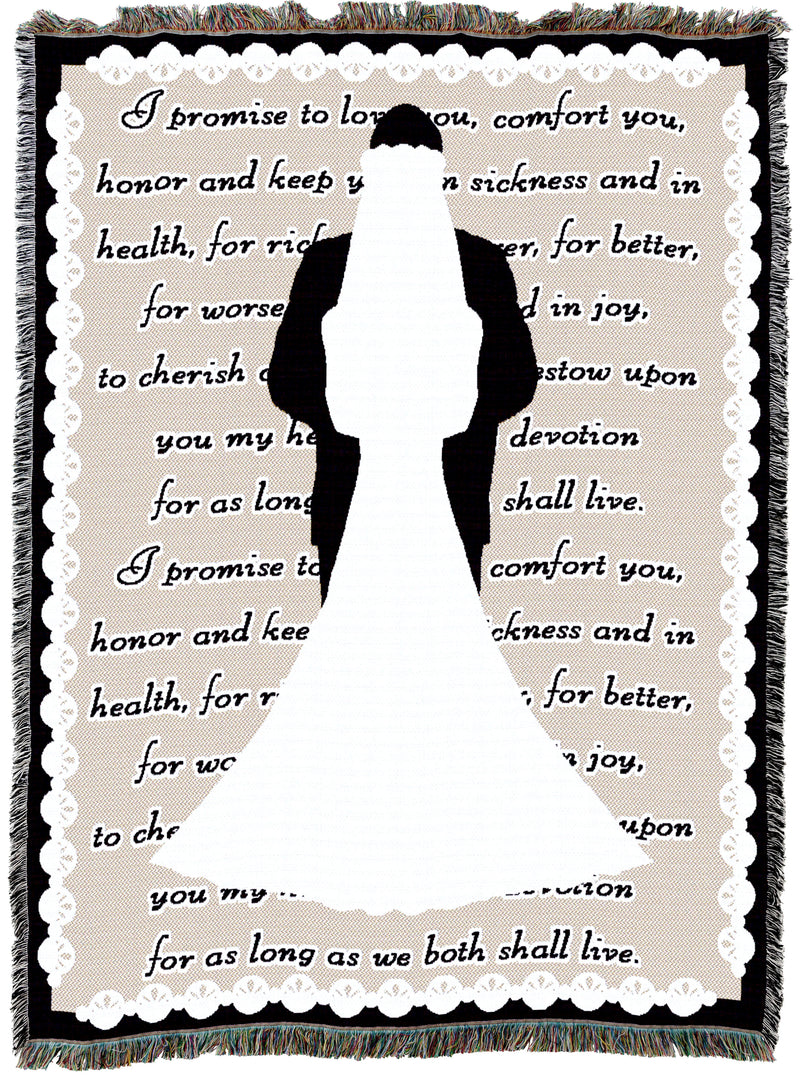 I promise to love you, comfort you,
honor and keep you in sickness and in
health, for richer, for better,
for worse in joy,
to cherish bestow upon
you my devotion
for as long shall live.
I promise to comfort you,
honor and keep sickness and in
health, for for better,
for in joy,
to upon
you my devotion
for as long as we both shall live.